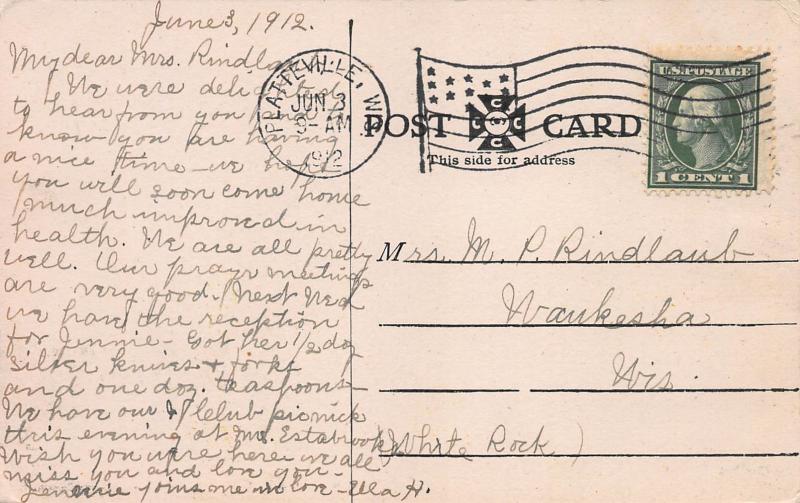 June 3, 1912.
My dear Mrs. Rindlaub
We were delighted
to hear from you and
know you are having
a nice time - we hope
you will soon come home
much improved in
health. We are all pretty
well. Our prayr meetings
are very good. Next Wed
we have the reception
for Jennie - Got her 1/2 doz
silver knives & forks
and one doz. teaspoons -
We have our Club picnick
this evening at Mr. Estabrook
Wish you were here we all
miss you and love you -
Jennie joins me in love - Ella H.
PLATTEVILLE, WI
JUN 3
9 - AM
1912
POST CARD
C C C C
This side for address
U.S. POSTAGE
1 CENT 1
Mrs. M. P. Rindlaub
Waukesha
Wis.
(White Rock)